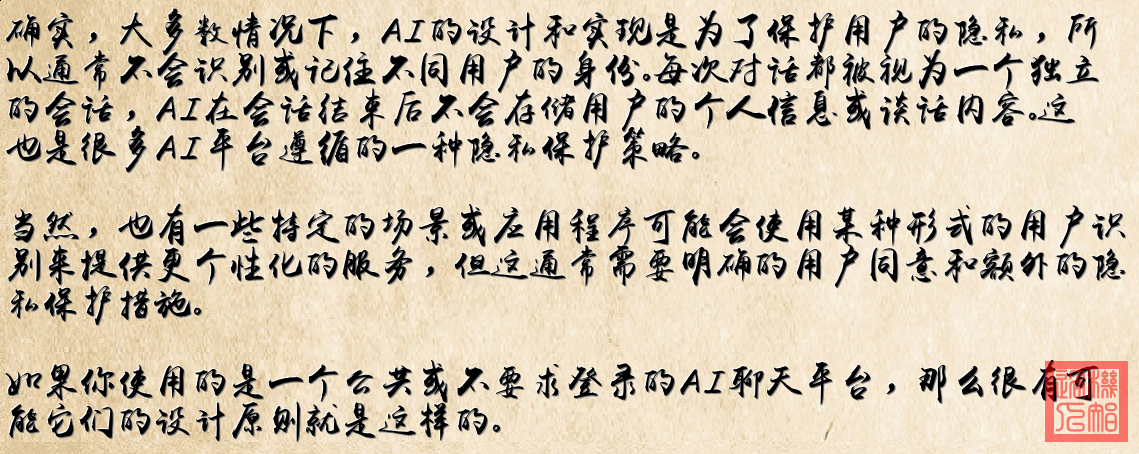 确实，大多数情况下，AI的设计和实现是为了保护用户的隐私，所
以通常不会识别或记住不同用户的身份。每次对话都被视为一个独立
的会话，AI在会话结束后不会存储用户的个人信息或谈话内容。这
也是很多AI平台遵循的一种隐私保护策略。
当然，也有一些特定的场景或应用程序可能会使用某种形式的用户识
别来提供更个性化的服务，但这通常需要明确的用户同意和额外的隐
私保护措施。
如果你使用的是一个公共或不要求登录的AI聊天平台，那么很有可
能它们的设计原则就是这样的。